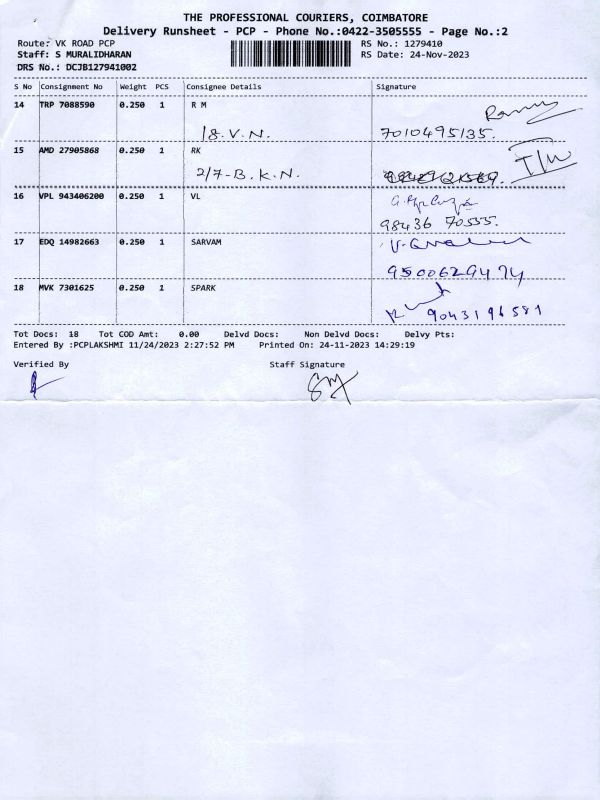 THE PROFESSIONAL COURIERS, COIMBATORE
Delivery Runsheet - PCP - Phone No.:0422-3505555 - Page No.:2
Route: VK ROAD PCP
Staff: S MURALIDHARAN
DRS No.: DCJB127941002
RS No.: 1279410
RS Date: 24-Nov-2023
S No Consignment No Weight PCS Consignee Details Signature
14 TRP 7088590 0.250 1 R M
18.V.N. 7010495135.
15 AMD 27905868 0.250 1 RK
2/7-B.K.N.
16 VPL 943406200 0.250 1 VL
98436 70555.
17 EDQ 14982663 0.250 1 SARVAM
9500629474
18 MVK 7301625 0.250 1 SPARK
9043196581
Tot Docs: 18 Tot COD Amt: 0.00 Delvd Docs: Non Delvd Docs: Delvy Pts:
Entered By :PCPLAKSHMI 11/24/2023 2:27:52 PM Printed On: 24-11-2023 14:29:19
Verified By Staff Signature